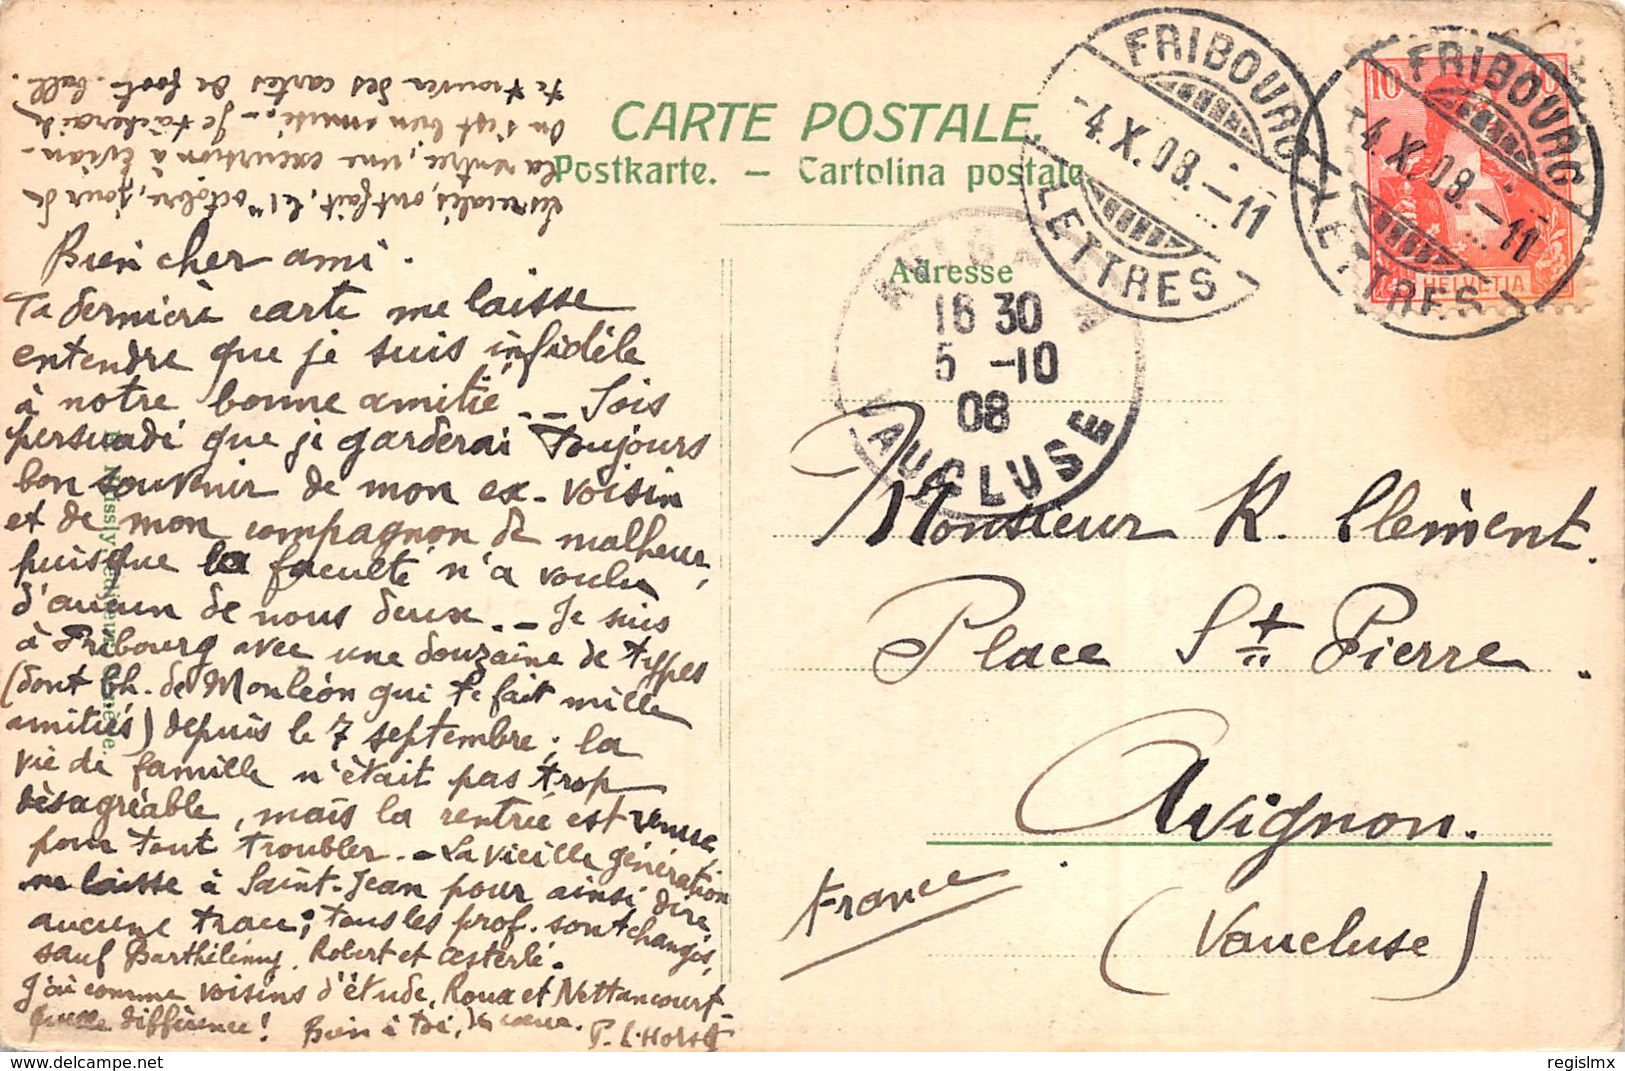 CARTE POSTALE.
Postkarte. — Cartolina postale
Adresse
FRIBOURG
-4.X.08.-11
LETTRES
FRIBOURG
-4.X.08.-11
LETTRES
10
HELVETIA
16 30
5 -10
08
VAUCLUSE
Monsieur R. Clément.
Place St Pierre.
Avignon.
(Vaucluse)
France
ont fait, le 1er octobre, jour de
la rentrée, une excursion à Evian-
On s'est bien amusé. - Je tâcherai de
te trouver des cartes de foot-ball.
Bien cher ami.
Ta dernière carte me laisse
entendre que je suis infidèle
à notre bonne amitié. _ Sois
persuadé que je garderai toujours
bon souvenir de mon ex-voisin
et de mon compagnon de malheur,
puisque la faculté n'a voulu
d'aucun de nous deux. _ Je suis
à Fribourg avec une douzaine de types
(dont Ch. de Monléon qui te fait mille
amitiés) depuis le 7 septembre; la
vie de famille n'était pas trop
désagréable, mais la rentrée est venue
pour tout troubler. _ La vieille génération
ne laisse à Saint-Jean pour ainsi dire
aucune trace; tous les prof. sont changés,
sauf Barthélemy, Robert et Œsterlé.
J'ai comme voisins d'étude, Roux et Nettancourt_
Quelle différence! Bien à toi, de cœur.